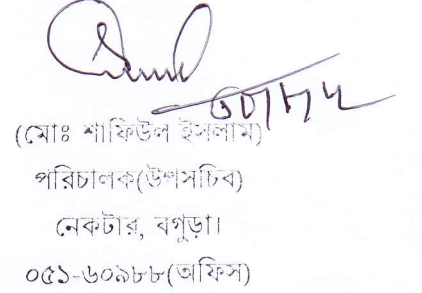 (মোঃ শাফিউল ইসলাম)
পরিচালক(উপসচিব)
নেকটার, বগুড়া।
০৫১-৬০৯৮৮(অফিস)